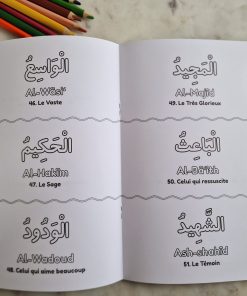 الْوَاسِعُ
Al-Wāsi'
46. Le Vaste
الْحَكِيمُ
Al-Hakim
47. Le Sage
الْوَدُودُ
Al-Wadoud
48. Celui qui aime beaucoup
الْمَجِيدُ
Al-Majid
49. Le Très Glorieux
الْبَاعِثُ
Al-Bā'ith
50. Celui qui ressuscite
الشَّهِيدُ
Ash-shahid
51. Le Témoin